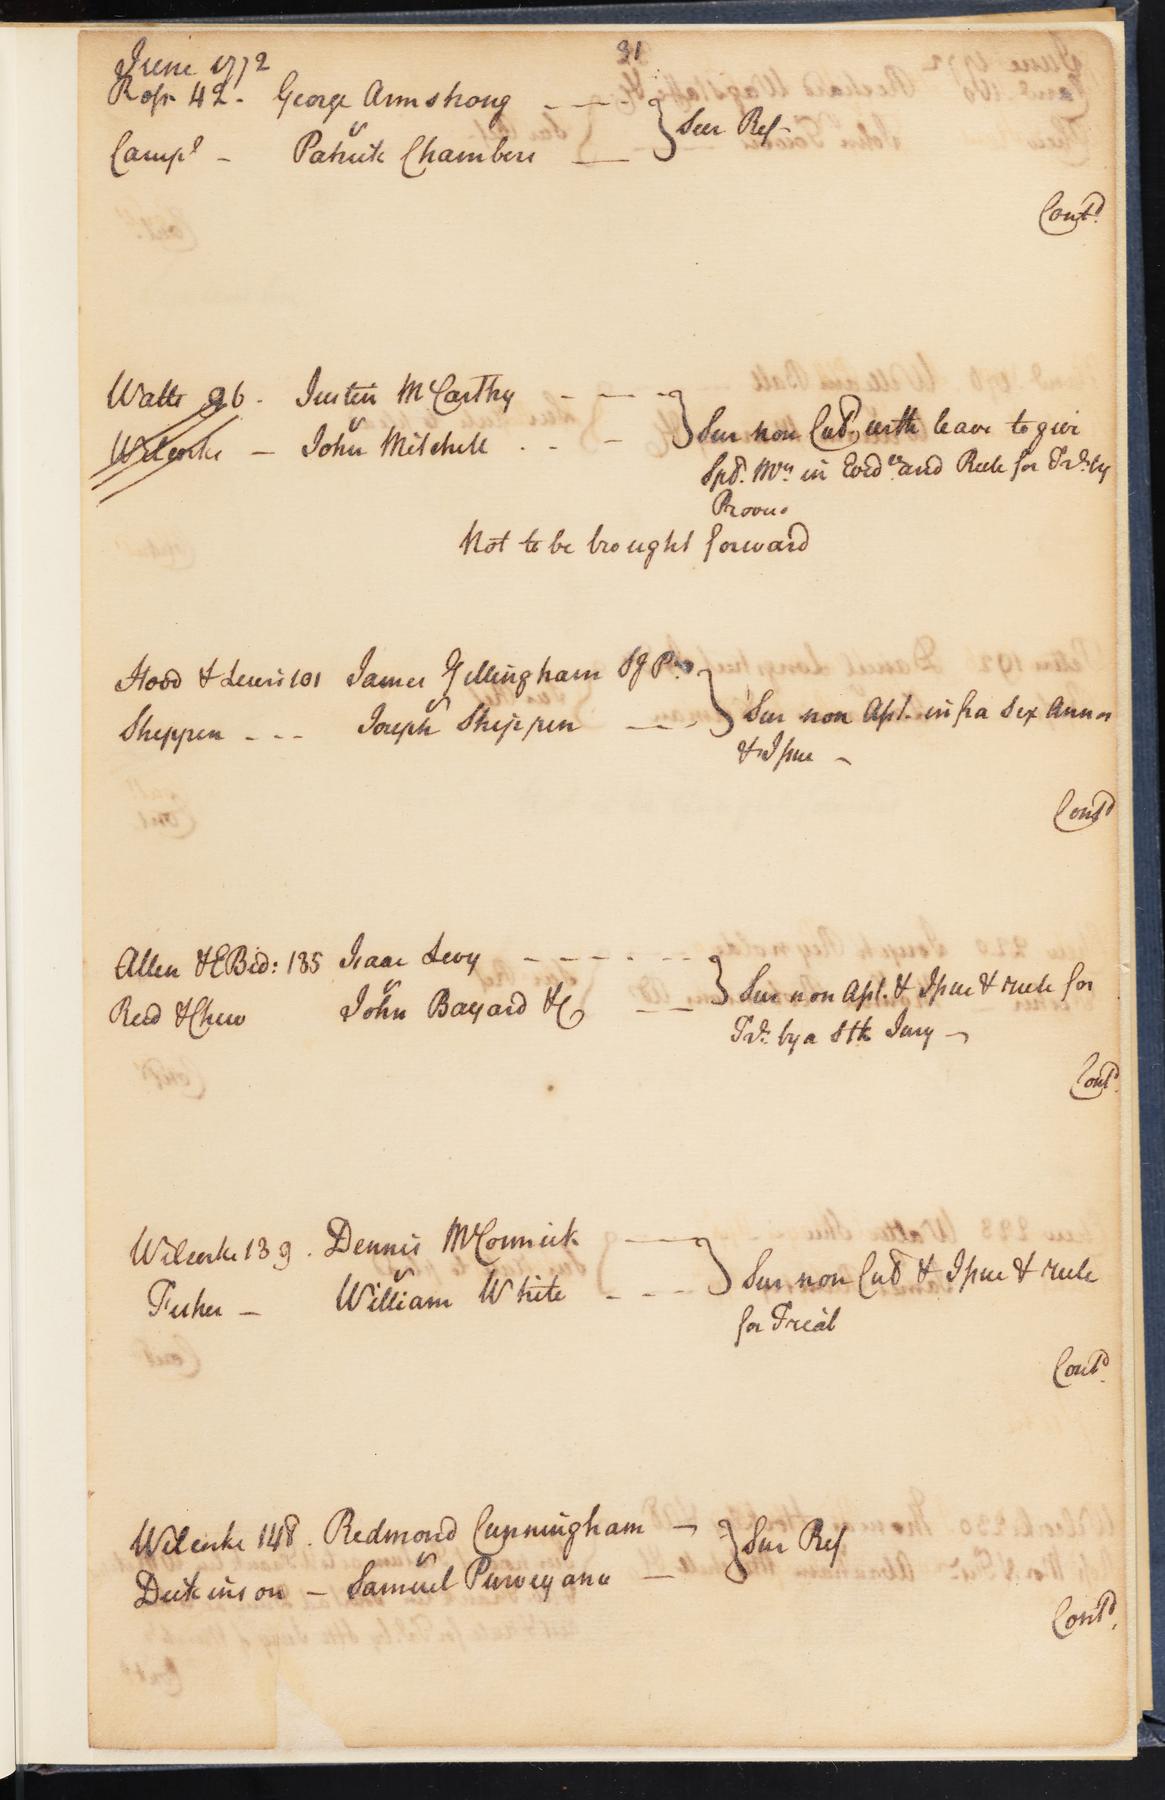 31
June 1772
Ross 42 - George Armstrong
v
Campl - Patrick Chambers
} Sur Ref
Contd
Watts 96 - Justin McCarthy
v
Wilcocks - John Mitchell
} Sur non Cul, with leave to give
Spl. Mrs in Evdce and Rule for Trl. by
Provo.
Not to be brought forward
Hood & Lewis 101 James Gillingham
v
Shippen - - - Joseph Shippen
} Sur non Apt. infra Sex Annos
& Issue -
Contd
Allen & E Bid: 135 Isaac Levy
v
Reed & Chew John Bayard & Co
} Sur non Apt. & Issue & rule for
Trl. by a Stk Jury -
Contd
Wilcocks 139 . Dennis McCormick
v
Fisher - William White
} Sur non Cul & Issue & rule
for Trial
Contd
Wilcocks 148 . Redmond Cunningham
v
Dickinson - Samuel Purveyance
} Sur Ref
Contd.